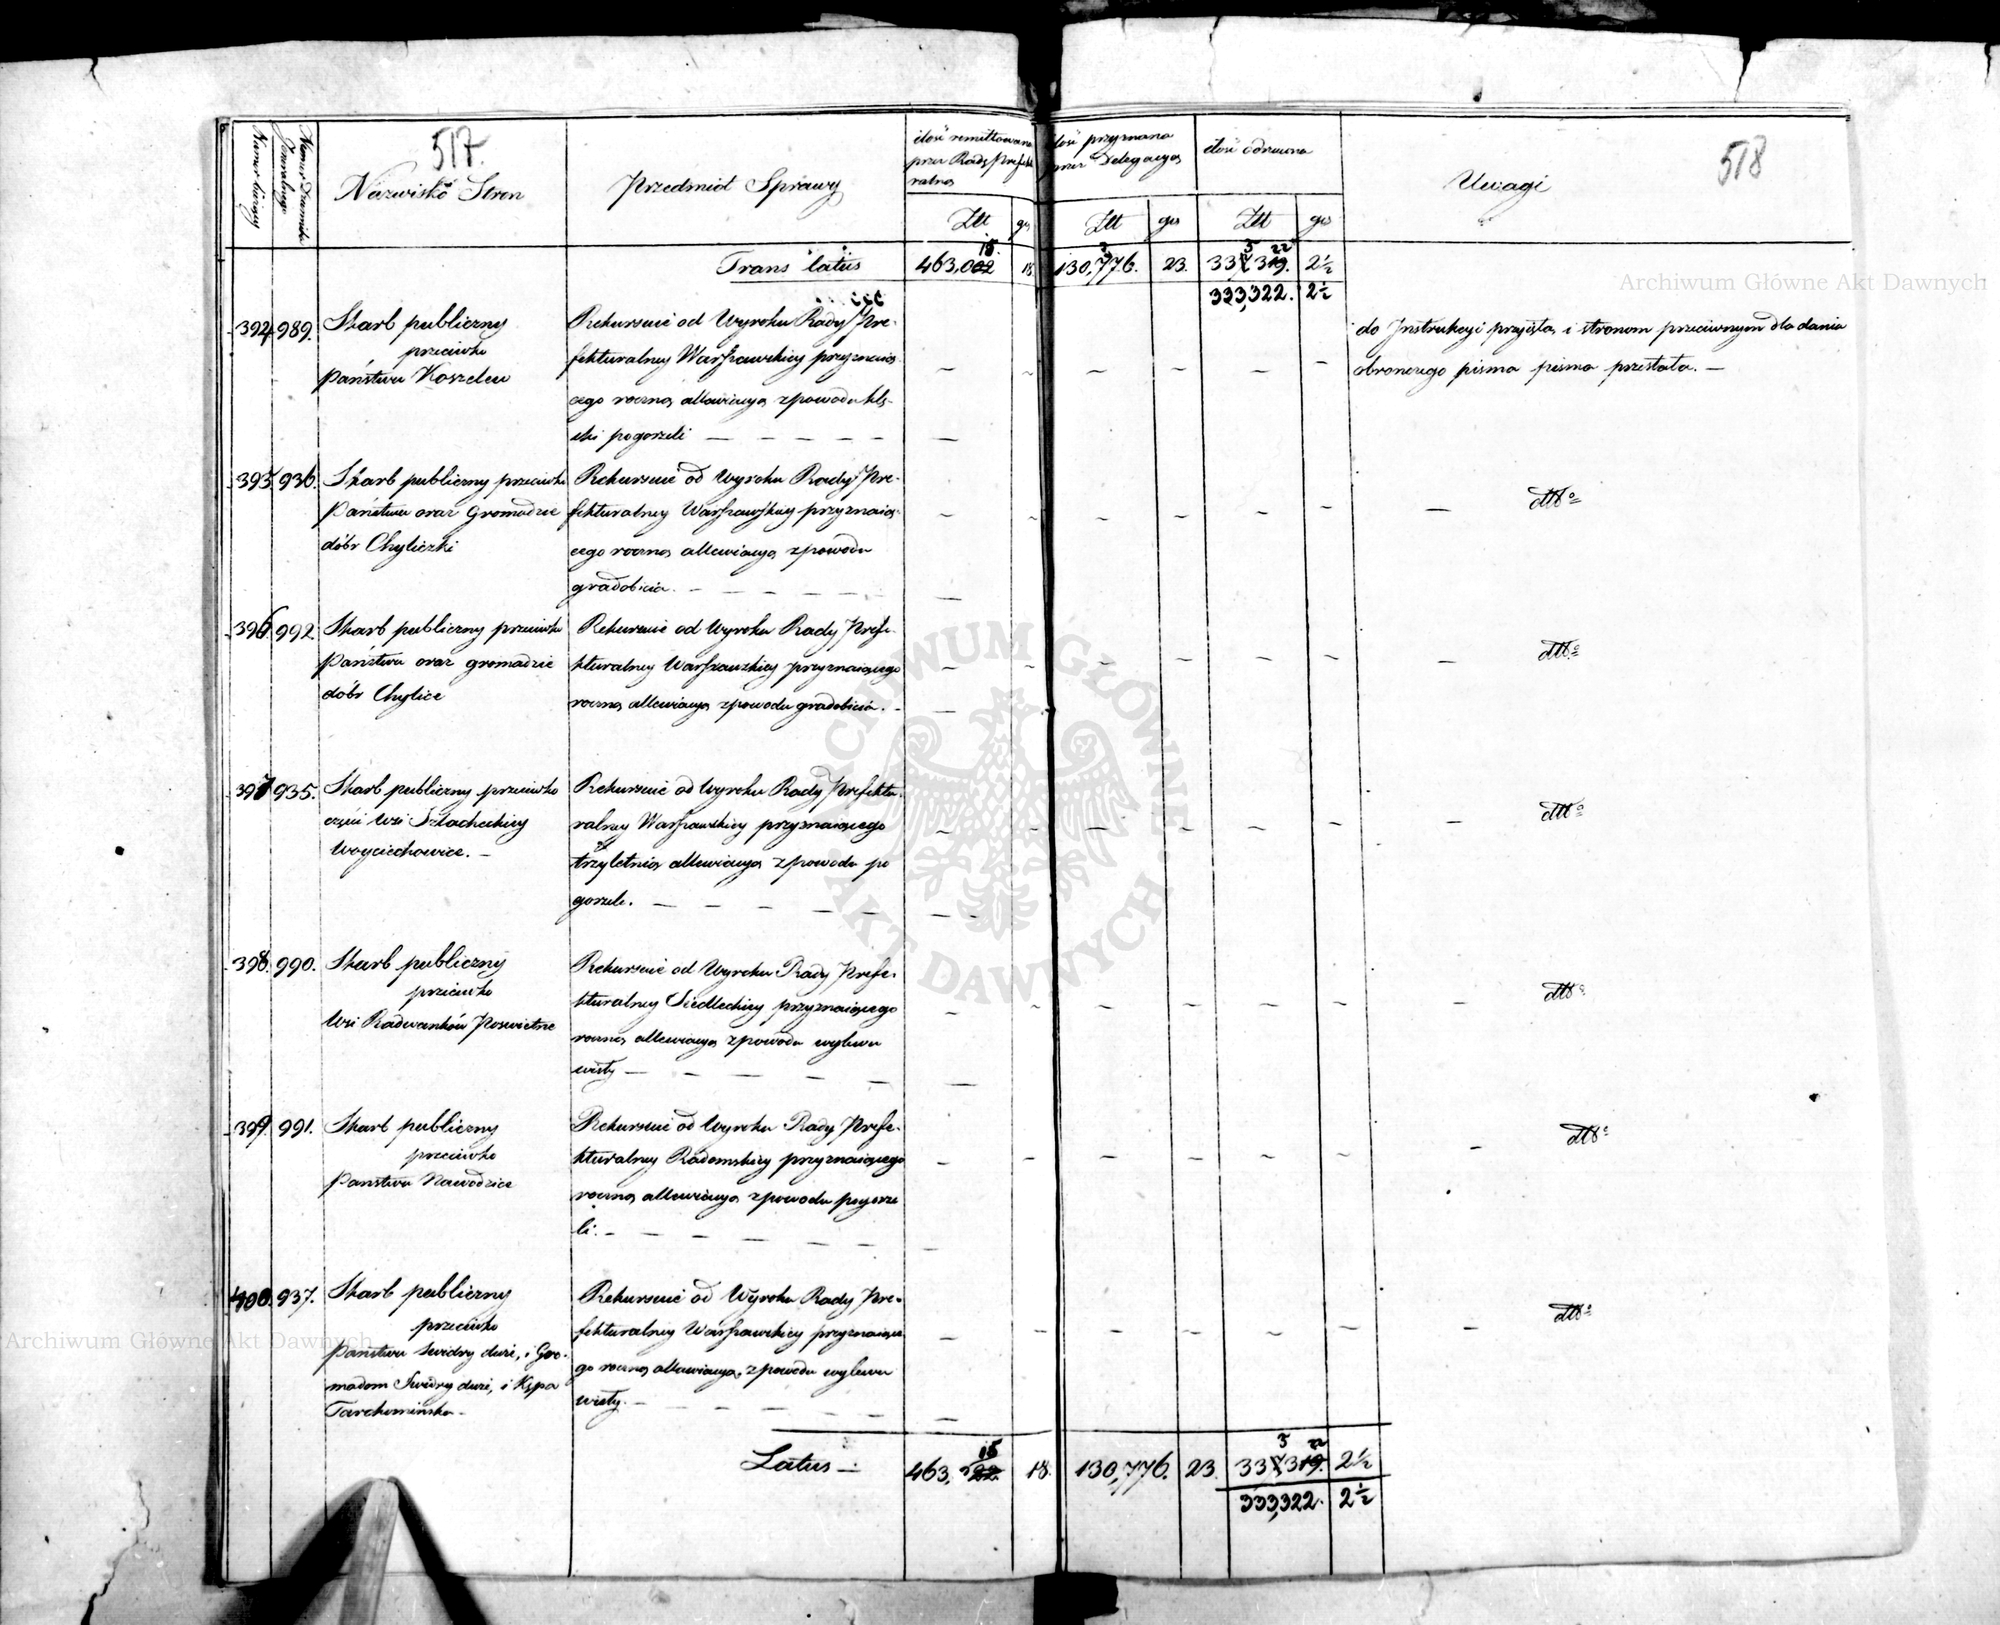 517.
518
Numer bieżący
Numer Dziennika Jeneralnego
Nazwisko Stron
Przedmiot Sprawy
ilość remittowana przez Radę Prefekturalną
ilość przyznana przez Delegacyą
ilość odrzucona
Uwagi
Złt gr Złt gr Złt gr
Trans latus 463,002 18 18 130,776. 23. 33 319. 2½
333,322. 2½
394 989. Skarb publiczny
przeciwko
Państwu Koszelew
Rekursuie od Wyroku Rady Pre-
fekturalney Warszawskiey przyznaią-
cego roczną allewiacyą z powodu klę-
ski pogorzeli — — — — —
do Instrukcyi przyięta, i stronom przeciwnym dla dania
obronczego pisma pisma przesłała. —
395 936. Skarb publiczny przeciwko
Państwu oraz Gromadzie
dóbr Chyliczki
Rekursuie od Wyroku Rady Pre-
fekturalney Warszawskiey przyznaią-
cego roczną allewiacyą z powodu
gradobicia. — — — —
— dtto
396. 992 Skarb publiczny przeciwko
Państwu oraz gromadzie
dóbr Chylice
Rekursuie od Wyroku Rady Prefe-
kturalney Warszawskiey przyznaiącego
roczną allewiacyą z powodu gradobicia. -
— dtto
397 935. Skarb publiczny przeciwko
części Wsi Szlacheckiey
Woyciechowice. —
Rekursuie od Wyroku Rady Prefektu-
ralney Warszawskiey przyznaiącego
trzyletnią allewiacyą z powodu po
gorzeli. — — — — —
— dtto
398. 990. Skarb publiczny
przeciwko
Wsi Radwanków Poswietne
Rekursuie od Wyroku Rady Prefe-
kturalney Siedleckiey przyznaiącego
roczną allewiacyą z powodu wylewu
wisły — — — — —
— dtto
399. 991. Skarb publiczny
przeciwko
Państwu Nawodzice
Rekursuie od Wyroku Rady Prefe-
kturalney Radomskiey przyznaiącego
roczną allewiacyą z powodu pogorze
li. — — — — —
— dtto
400. 937. Skarb publiczny
przeciwko
Państwu Swidry duże, i Gro-
madom Swidry duże, i Kępa
Tarchomińska —
Rekursuie od Wyroku Rady Pre-
fekturalney Warszawskiey przyznaiące
go roczną allewiacyą, z powodu wylewu
wisły. — — — — —
— dtto
Latus — 463, 18 18. 130,776. 23. 33 319. 2½
333,322. 2½
Archiwum Główne Akt Dawnych
Archiwum Główne Akt Dawnych
ARCHIWUM GŁÓWNE AKT DAWNYCH